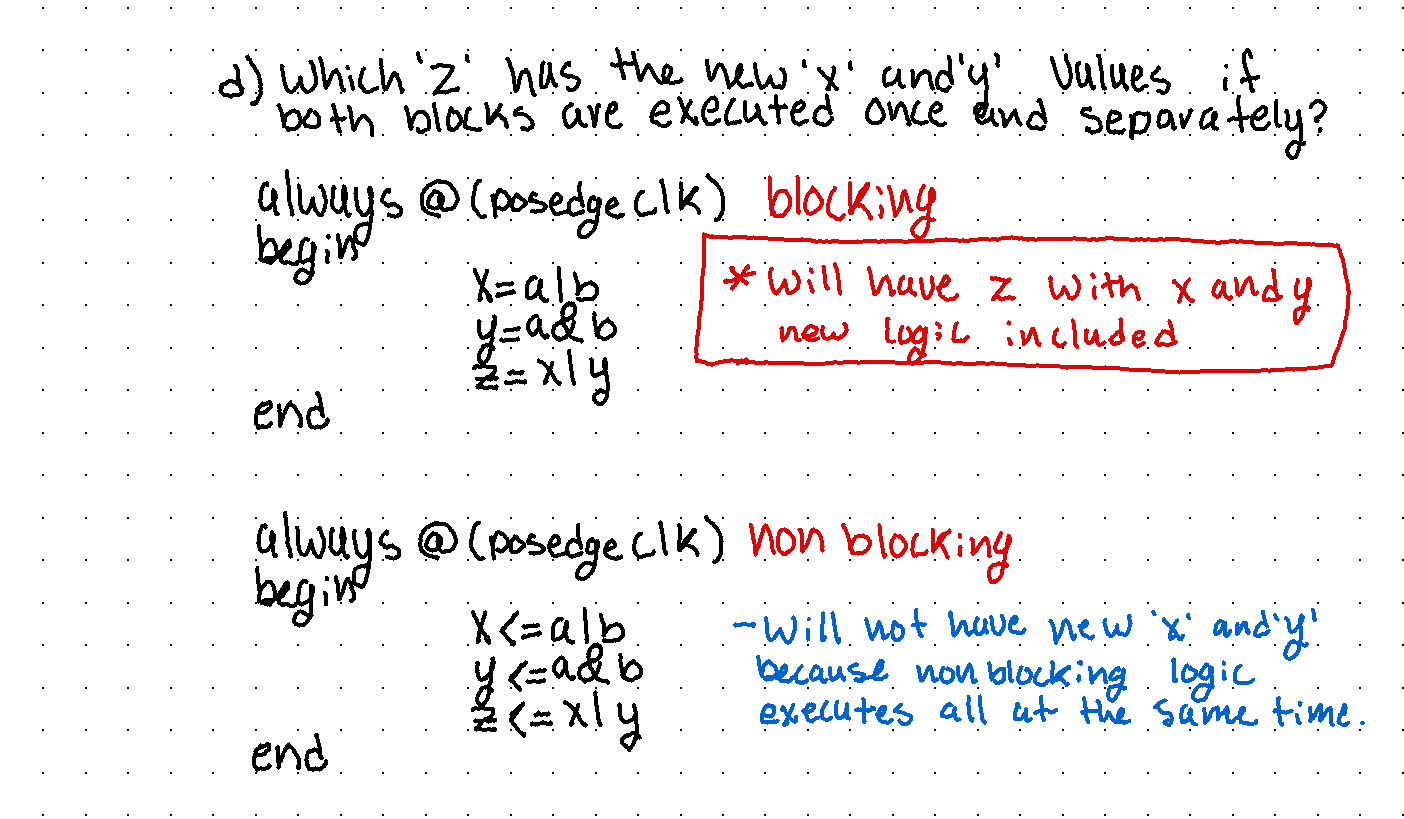 d) Which 'z' has the new 'x' and 'y' values if
both blocks are executed once and separately?
always @ (posedge clk) blocking
begin
x=a|b
y=a&b
z=x|y
end
* Will have z with x and y
new logic included
always @ (posedge clk) non blocking
begin
x<=a|b
y<=a&b
z<=x|y
end
- Will not have new 'x' and 'y'
because non blocking logic
executes all at the same time.